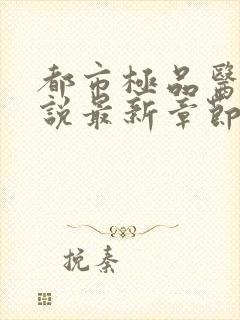 都市極品醫
說最新章節
挽秦